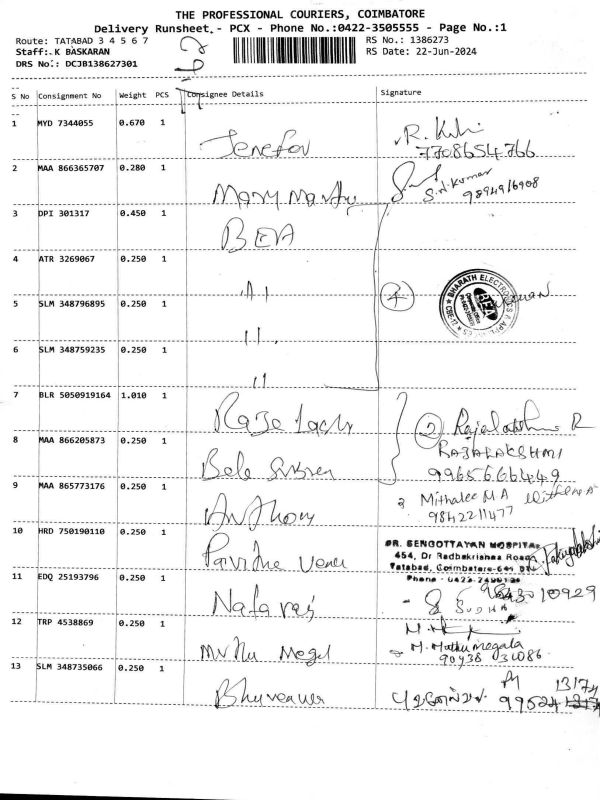 THE PROFESSIONAL COURIERS, COIMBATORE
Delivery Runsheet - PCX - Phone No.:0422-3505555 - Page No.:1
Route: TATABAD 3 4 5 6 7
RS No.: 1386273
Staff: K BASKARAN
RS Date: 22-Jun-2024
DRS No.: DCJB138627301
S No Consignment No Weight PCS Consignee Details Signature
1 MYD 7344055 0.670 1 R. K
7708654766
2 MAA 866365707 0.280 1 Mary S.N.Kumar
9894916908
3 DPI 301317 0.450 1 BEA
4 ATR 3269067 0.250 1 11
4 BHARATH ELECTRONICS & APPL
5 SLM 348796895 0.250 1 11
6 SLM 348759235 0.250 1 11
7 BLR 5050919164 1.010 1 2 Rajalakshmi R
RAJALAKSHMI
8 MAA 866205873 0.250 1 Bala
9965666449
9 MAA 865773176 0.250 1 Anthony Mithalee M A
9842211477
10 HRD 750190110 0.250 1 DR. SENGOTTAYAN HOSPITAL
454, Dr Radhakrishna Road,
Tatabad, Coimbatore-641
Phone - 0422-
11 EDQ 25193796 0.250 1 Nataraj
SUDHA
12 TRP 4538869 0.250 1 Muthu Megal
M. Muthumegala
90438 31086
13 SLM 348735066 0.250 1 99524
13174